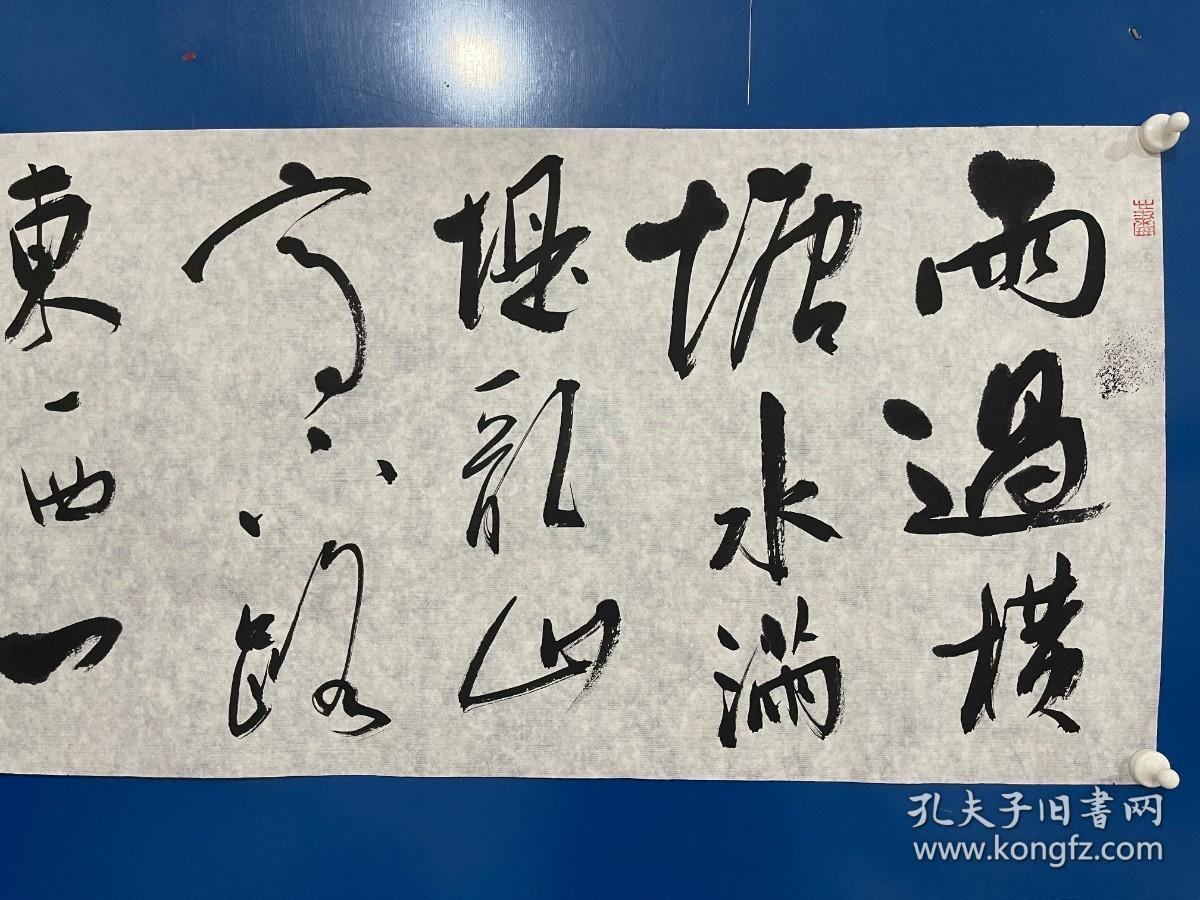 雨過横
塘水滿
堤亂山
高下路
東西一
孔夫子旧書网
www.kongfz.com